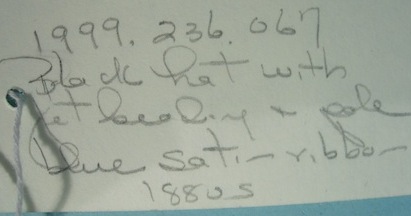 1999.236.067
Black hat with
jet beading + pale
blue satin ribbon
1880s